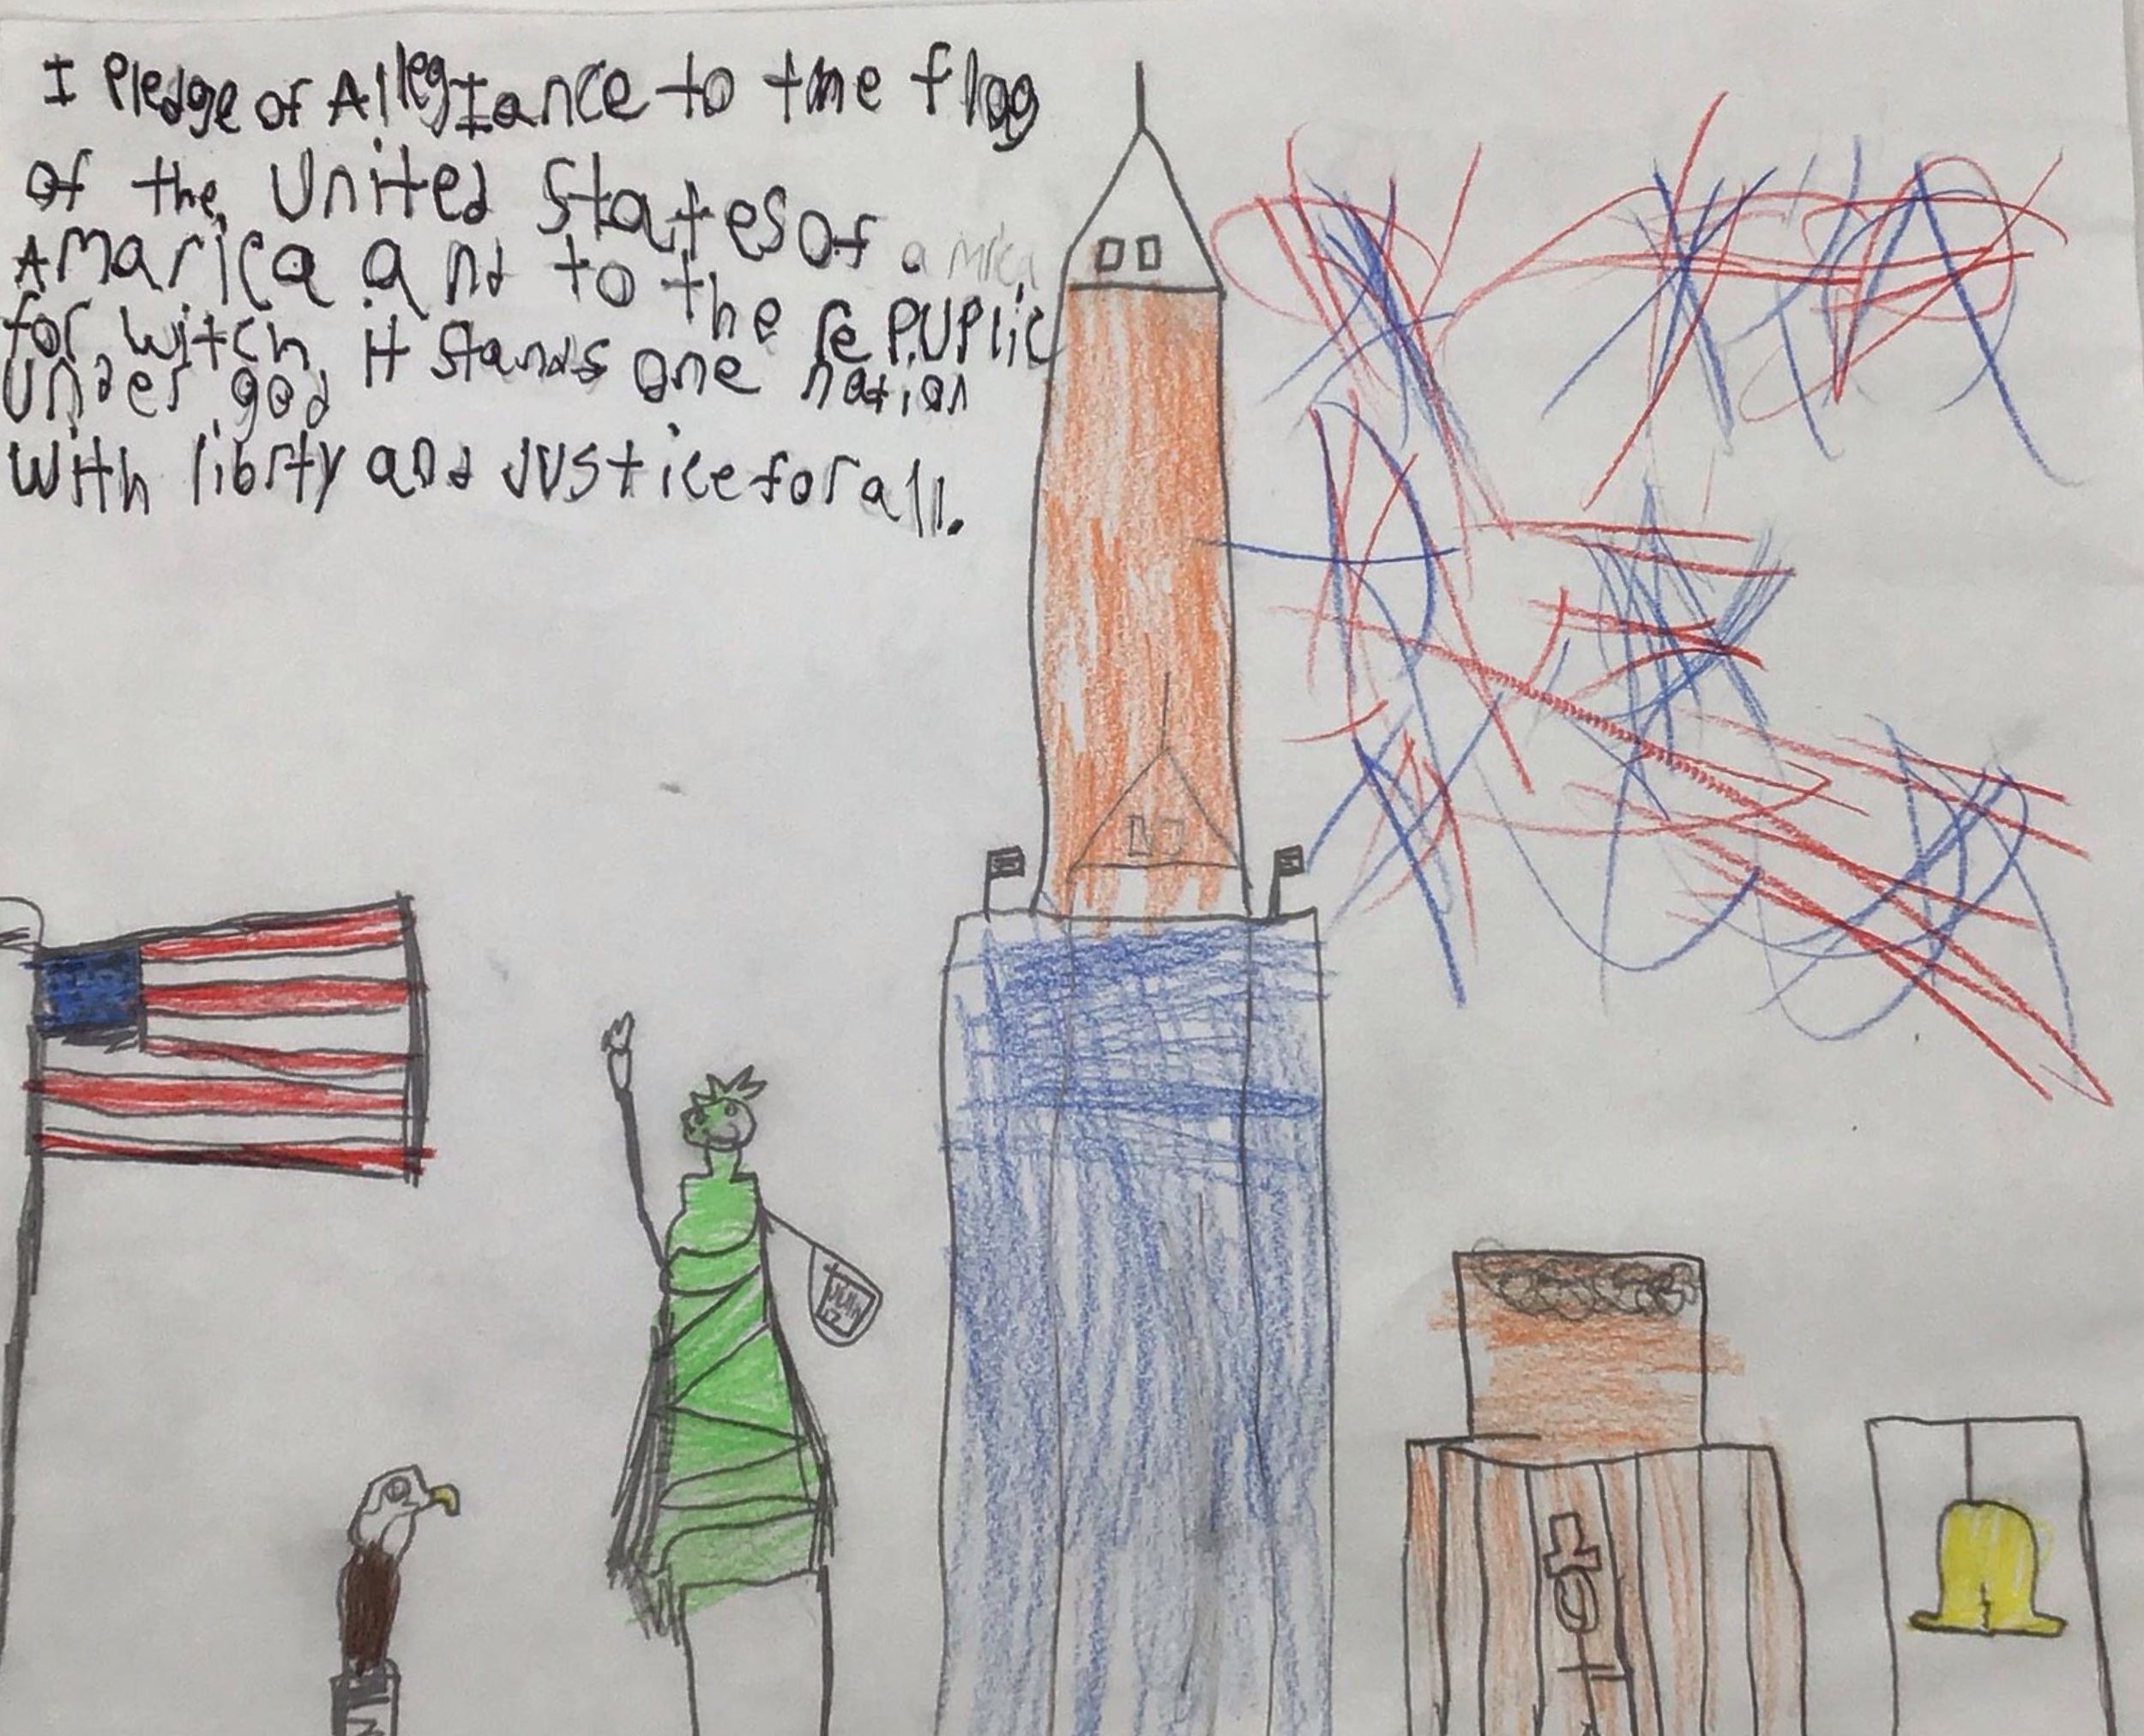 I Pledge of Allegiance to the flag
of the United States of a mica
Amarica and to the rePUPlic
for witch it stands one nation
under god
with librty and Justice for all.